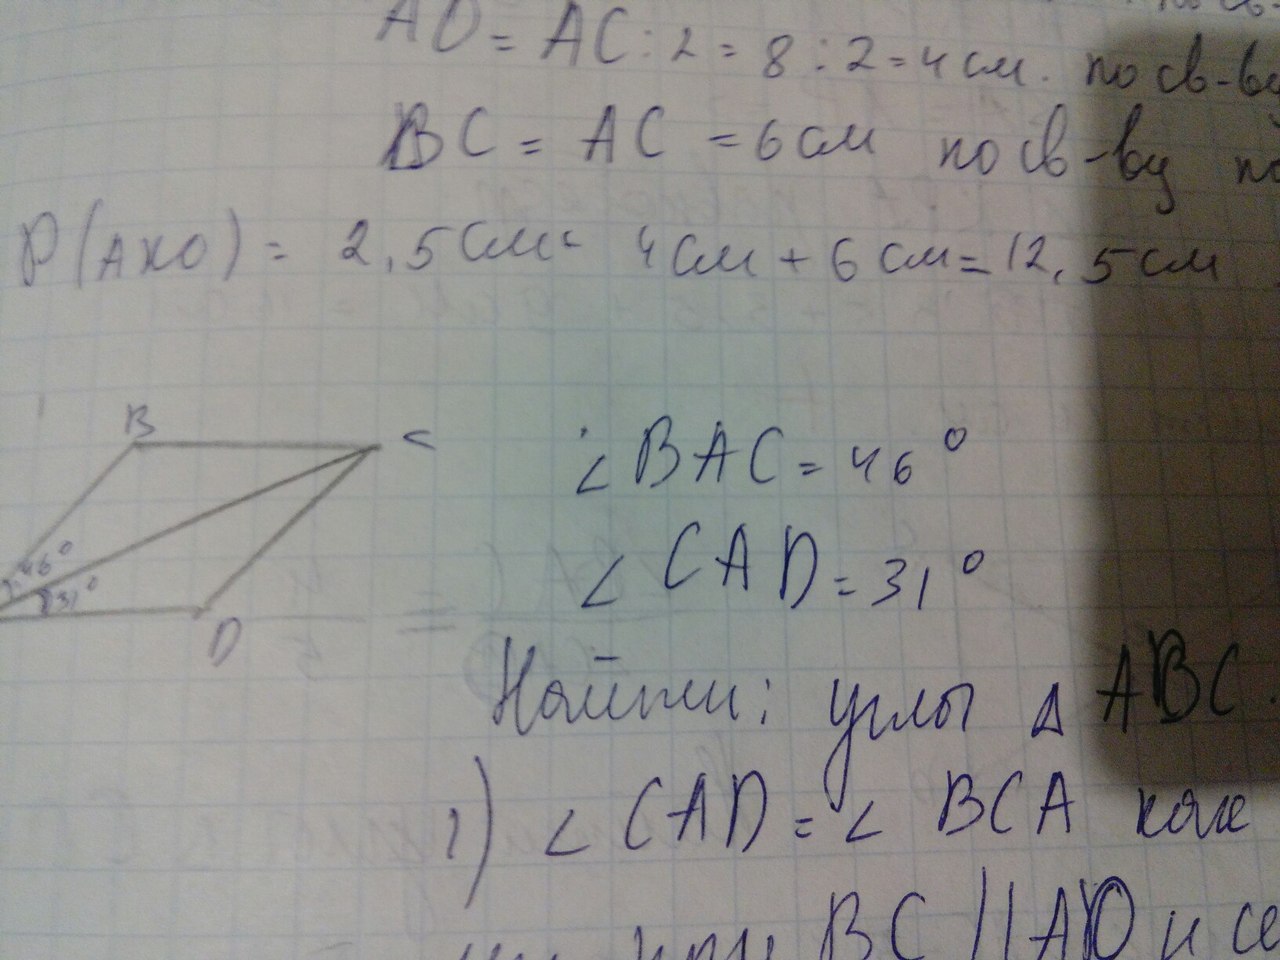 AO = AC : 2 = 8 : 2 = 4 см. по св-ву
BC = AC = 6 см по св-ву
P(AXO) = 2,5 см 4 см + 6 см = 12,5 см
B
C
46°
31°
D
∠ BAC = 46°
∠ CAD = 31°
Найти: углы Δ ABC.
1) ∠ CAD = ∠ BCA
при BC || AD и се